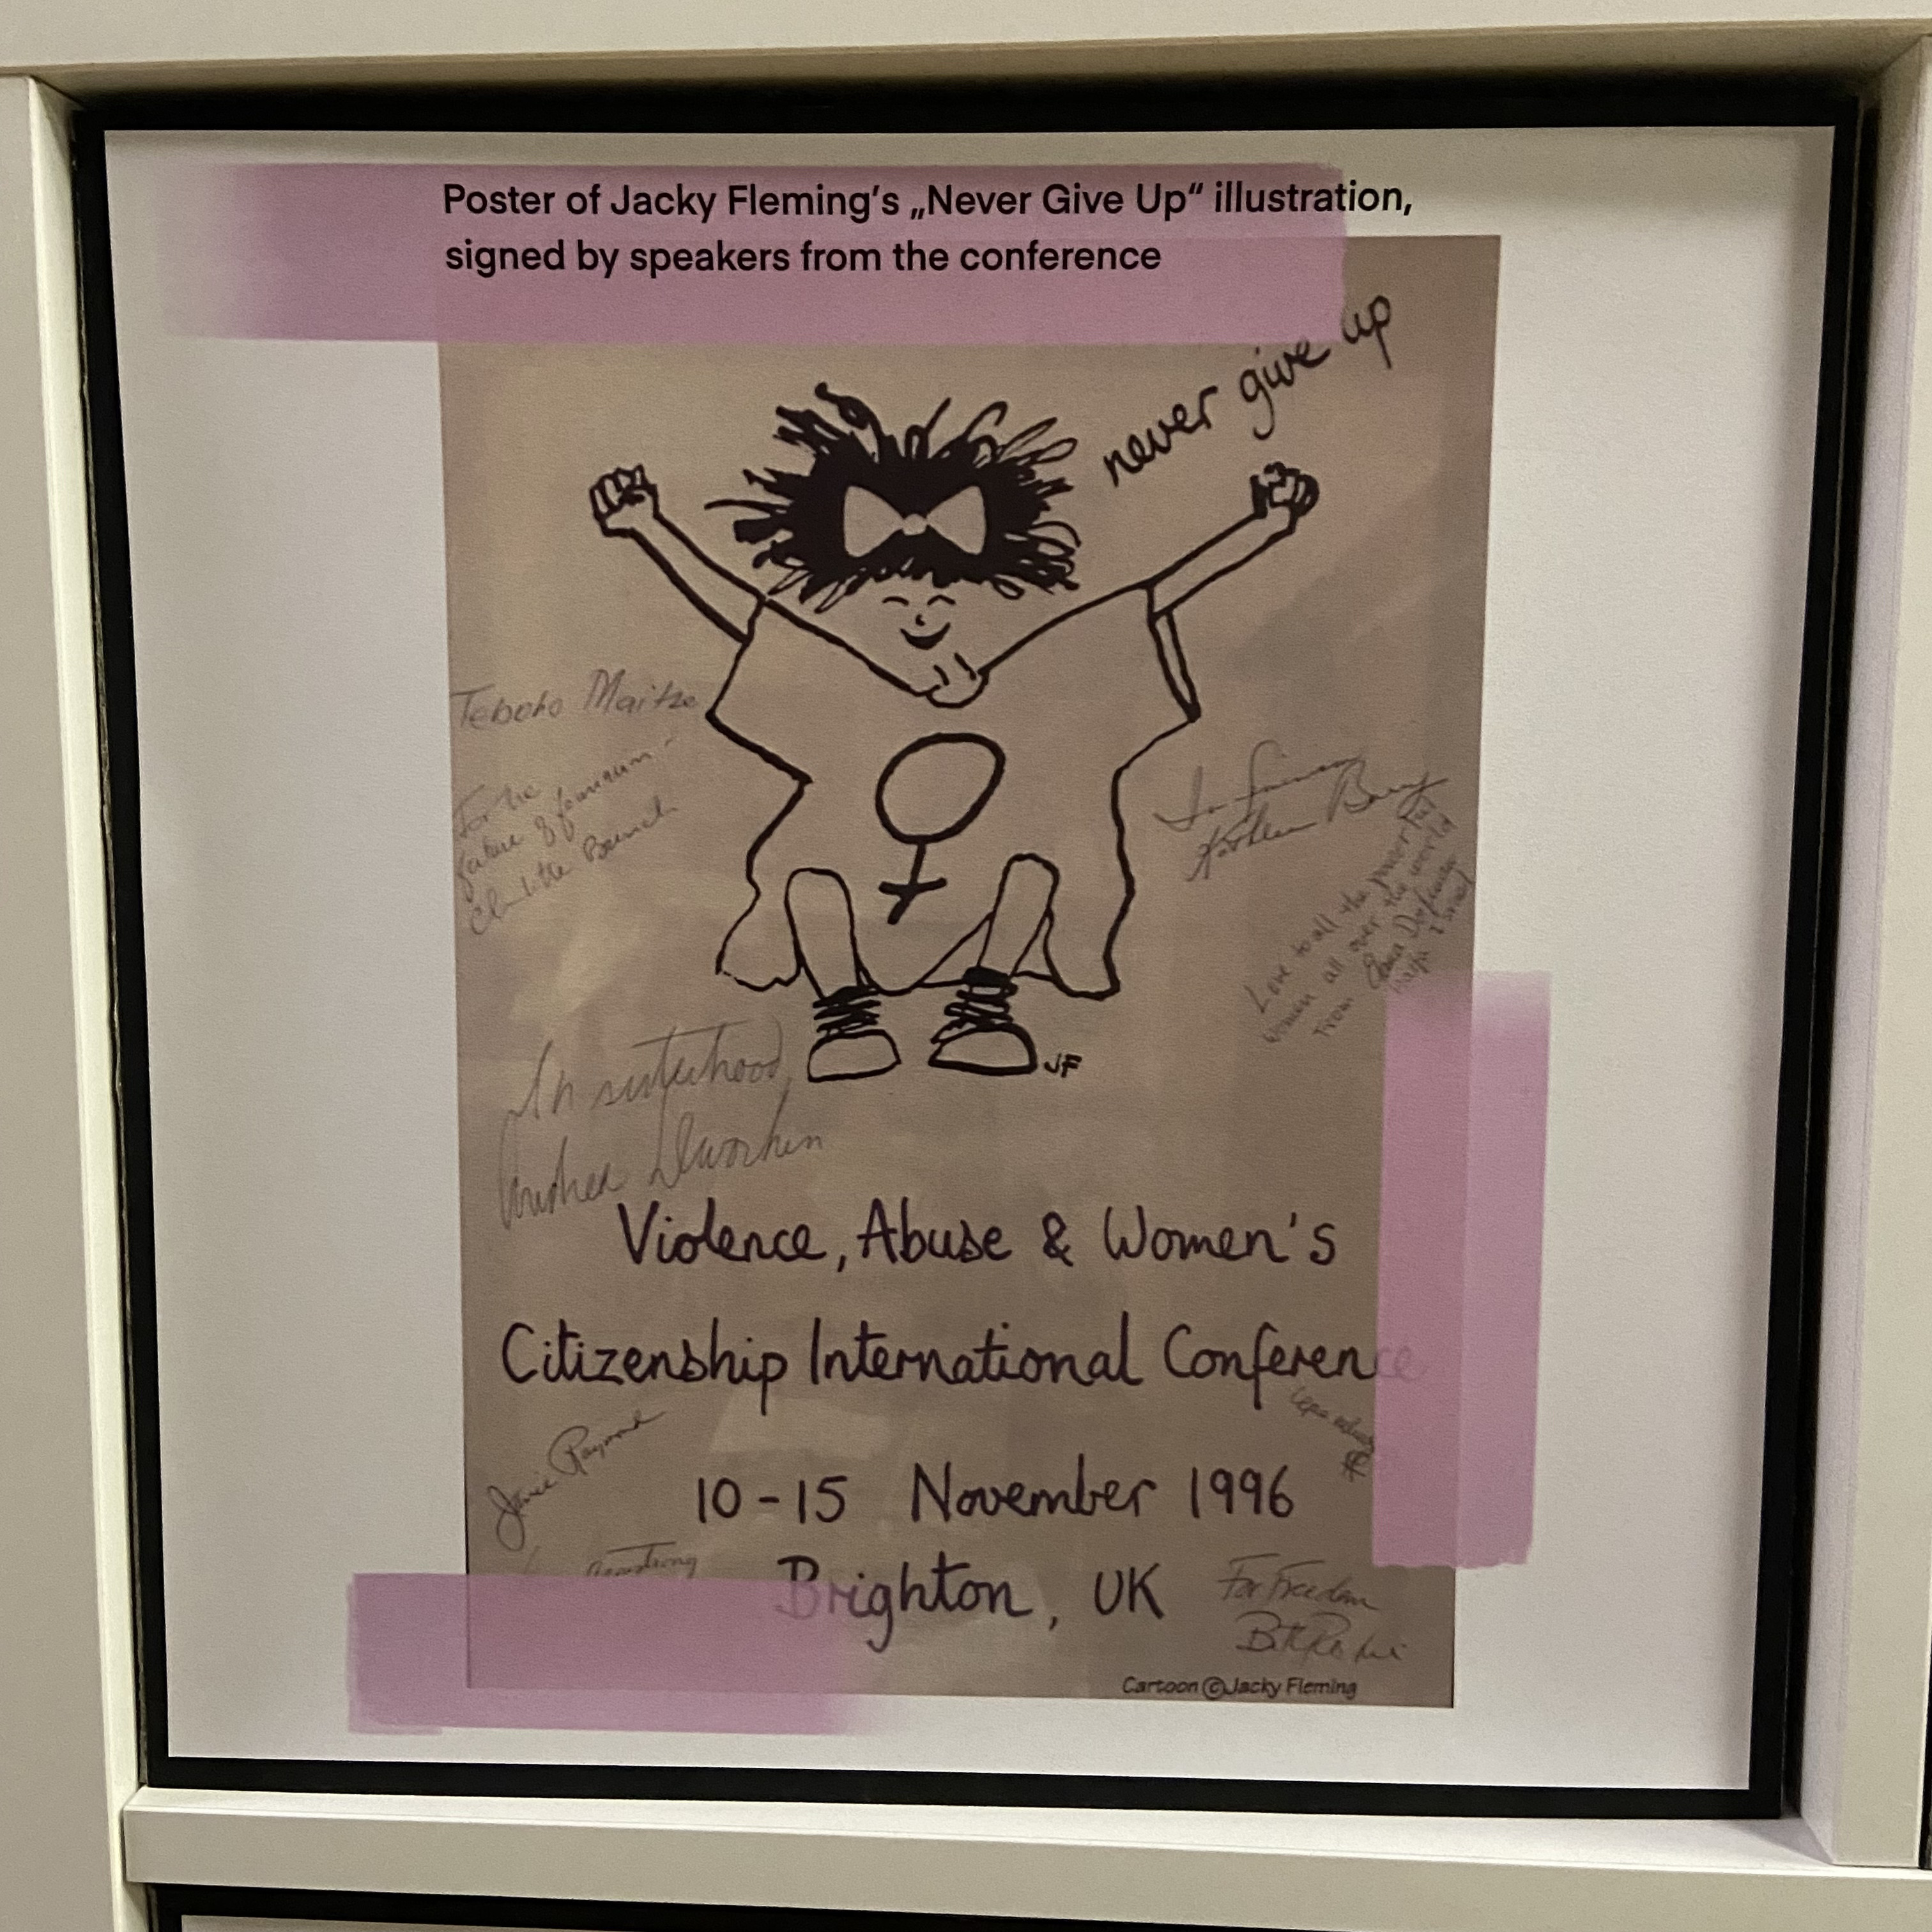 Poster of Jacky Fleming's „Never Give Up“ illustration,
signed by speakers from the conference
never give up
Teboho Maitse
For the
future of feminism -
Charlotte Bunch
In
Kathleen Barry
Love to all the powerful
women all over the world
From
Haifa Israel
JF
In sisterhood,
Andrea Dworkin
Violence, Abuse & Women's
Citizenship International Conference
Janice Raymond
10-15 November 1996
Armstrong
Brighton, UK
For Freedom
Cartoon © Jacky Fleming